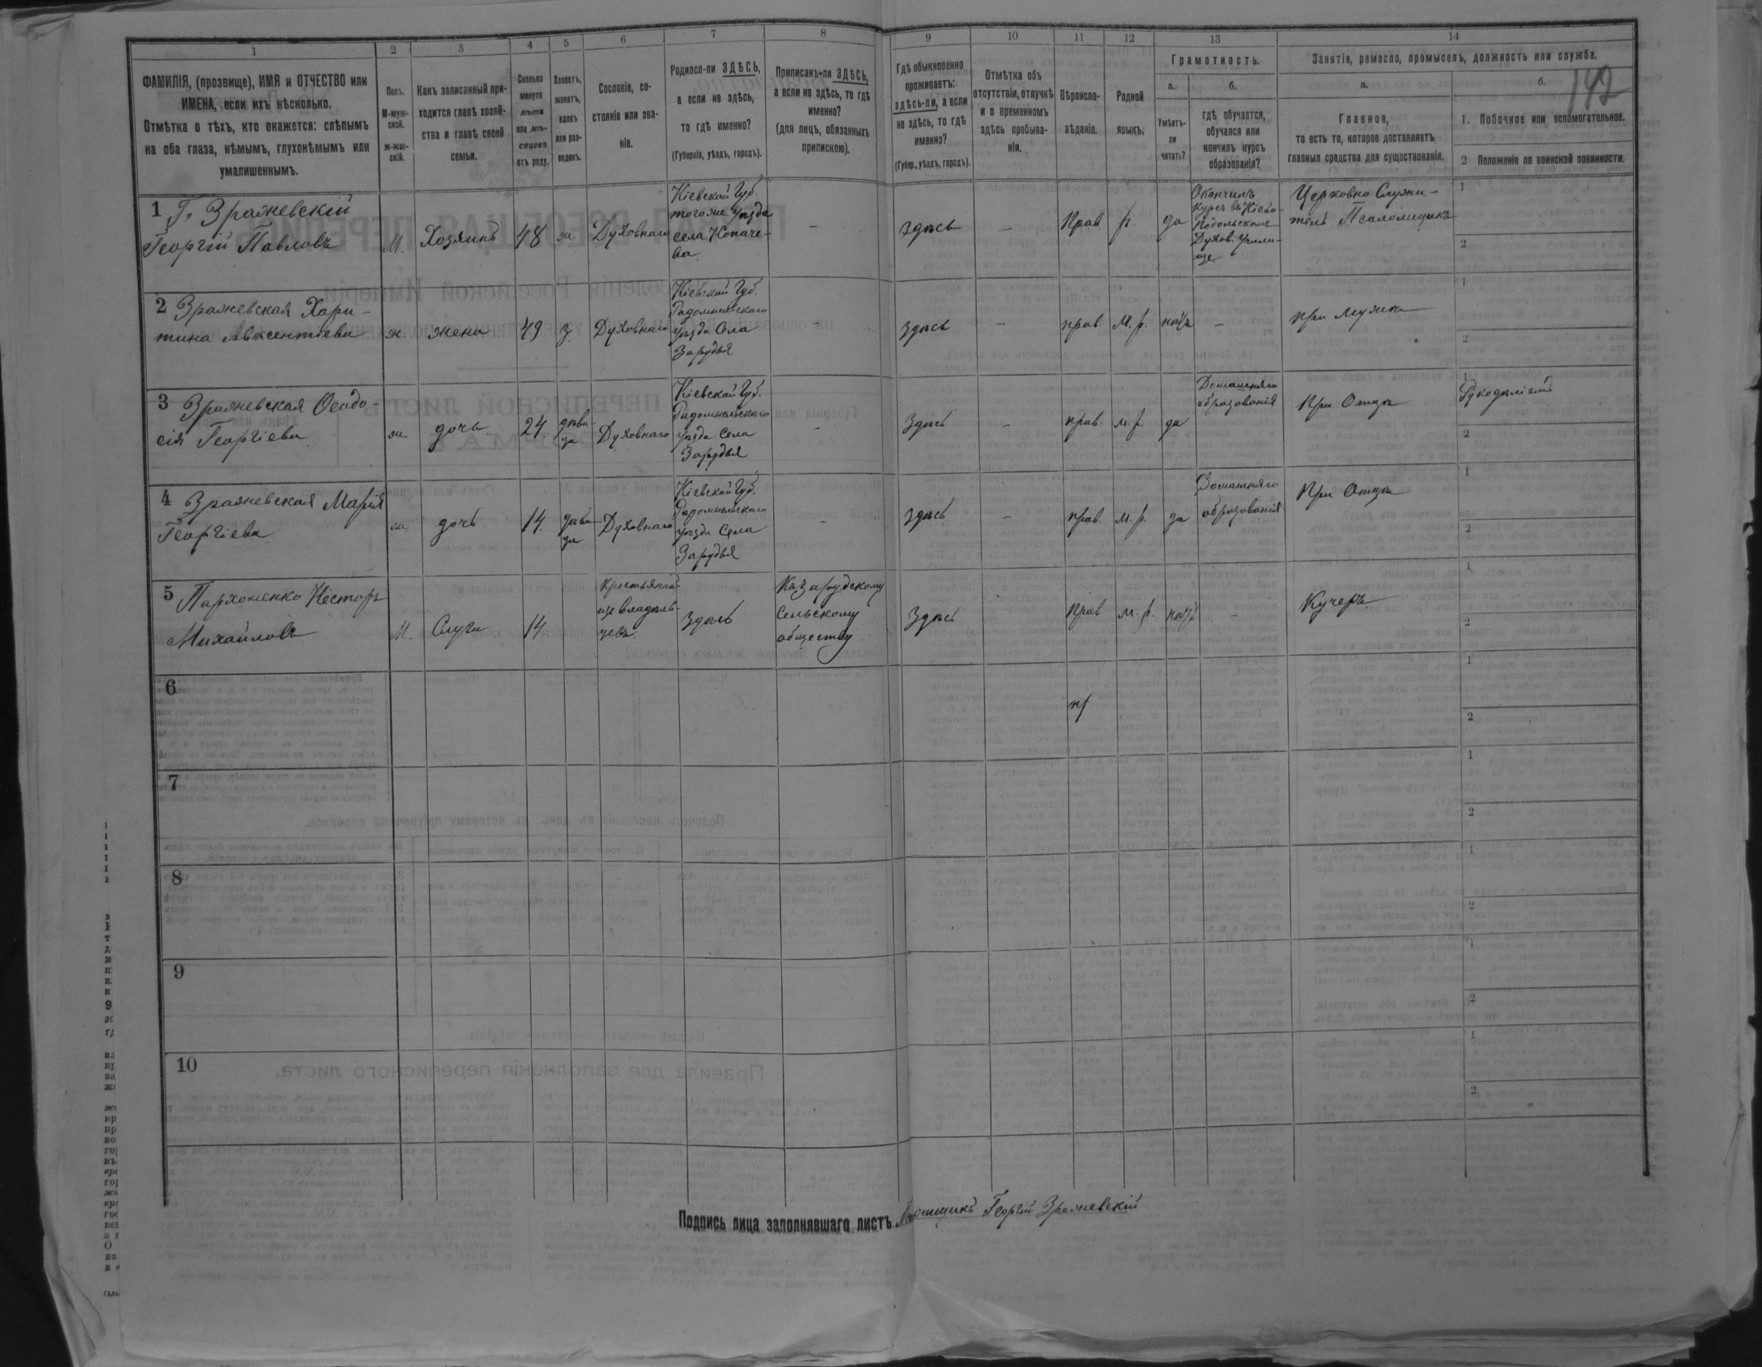 1 2 3 4 5 6 7 8 9 10 11 12 13 14
ФАМИЛІЯ, (прозвище), ИМЯ и ОТЧЕСТВО или
ИМЕНА, если ихъ нѣсколько.
Отмѣтка о тѣхъ, кто окажется: слѣпымъ
на оба глаза, нѣмымъ, глухонѣмымъ или
умалишеннымъ.
Полъ.
М-муж-
ской.
Ж-жен-
скій.
Какъ записанный при-
ходится главѣ хозяй-
ства и главѣ своей
семьи.
Сколько
минуло
лѣтъ
или мѣ-
сяцевъ
отъ роду.
Холостъ,
женатъ,
вдовъ
или раз-
веденъ.
Сословіе, со-
стояніе или зва-
ніе.
Родился-ли ЗДѢСЬ,
а если не здѣсь,
то гдѣ именно?
(Губернія, уѣздъ, городъ).
Приписанъ-ли ЗДѢСЬ,
а если не здѣсь, то гдѣ
именно?
(для лицъ, обязанныхъ
припискою).
Гдѣ обыкновенно
проживаетъ:
здѣсь-ли, а если
не здѣсь, то гдѣ
именно?
(Губер., уѣздъ, городъ).
Отмѣтка объ
отсутствіи, отлучкѣ
и о временномъ
здѣсь пребыва-
ніи.
Вѣроиспо-
вѣданіе.
Родной
языкъ.
Грамотность.
а.
Умѣетъ-
ли
читать?
б.
гдѣ обучается,
обучался или
кончилъ курсъ
образованія?
Занятія, ремесло, промыселъ, должность или служба.
а.
Главное,
то есть то, которое доставляетъ
главныя средства для существованія.
б.
142
1. Побочное или вспомогательное.
2 Положеніе по воинской повинности.
1 Г. Зражевскій
Георгій Павловъ
М. Хозяинъ 48 ж. Духовнаго
Кіевской Губ.
тогоже уѣзда
села Копаче-
ва
-
здѣсь - Прав р. да
Окончилъ
курсъ въ Кіево-
Подольскомъ
Духов. Учили-
ще
Церковно Служи-
тель Псаломщикъ
1
2
2 Зражевская Хари-
тина Авксентіева
ж. жена 49 з. Духовнаго
Кіевской Губ.
Радомысльскаго
уѣзда Села
Зарудья
-
здѣсь - прав м. р. нѣтъ -
При мужѣ
1
2
3 Зражевская Ѳеодо-
сія Георгіева
ж. дочь 24 дѣви-
ца Духовнаго
Кіевской Губ.
Радомысльскаго
уѣзда Села
Зарудья
-
Здѣсь - прав. м. р. да
Домашняго
образованія
При Отцѣ
1 Рукодѣліемъ
2
4 Зражевская Марія
Георгіева
ж. дочь 14 дѣви-
ца Духовнаго
Кіевской Губ.
Радомысльскаго
уѣзда Села
Зарудья
-
здѣсь - прав. м. р. да
Домашняго
образованія
При Отцѣ
1
2
5 Пархоменко Несторъ
Михайловъ
М. Слуга 14
Здѣсь
Къ Зарудскому
Сельскому
обществу
Здѣсь - Прав м. р. нѣтъ -
Кучеръ
1
2
6
1
2
7
1
2
8
1
2
9
1
2
10
1
2
Подпись лица заполнявшаго листъ Псаломщикъ Георгій Зражевскій